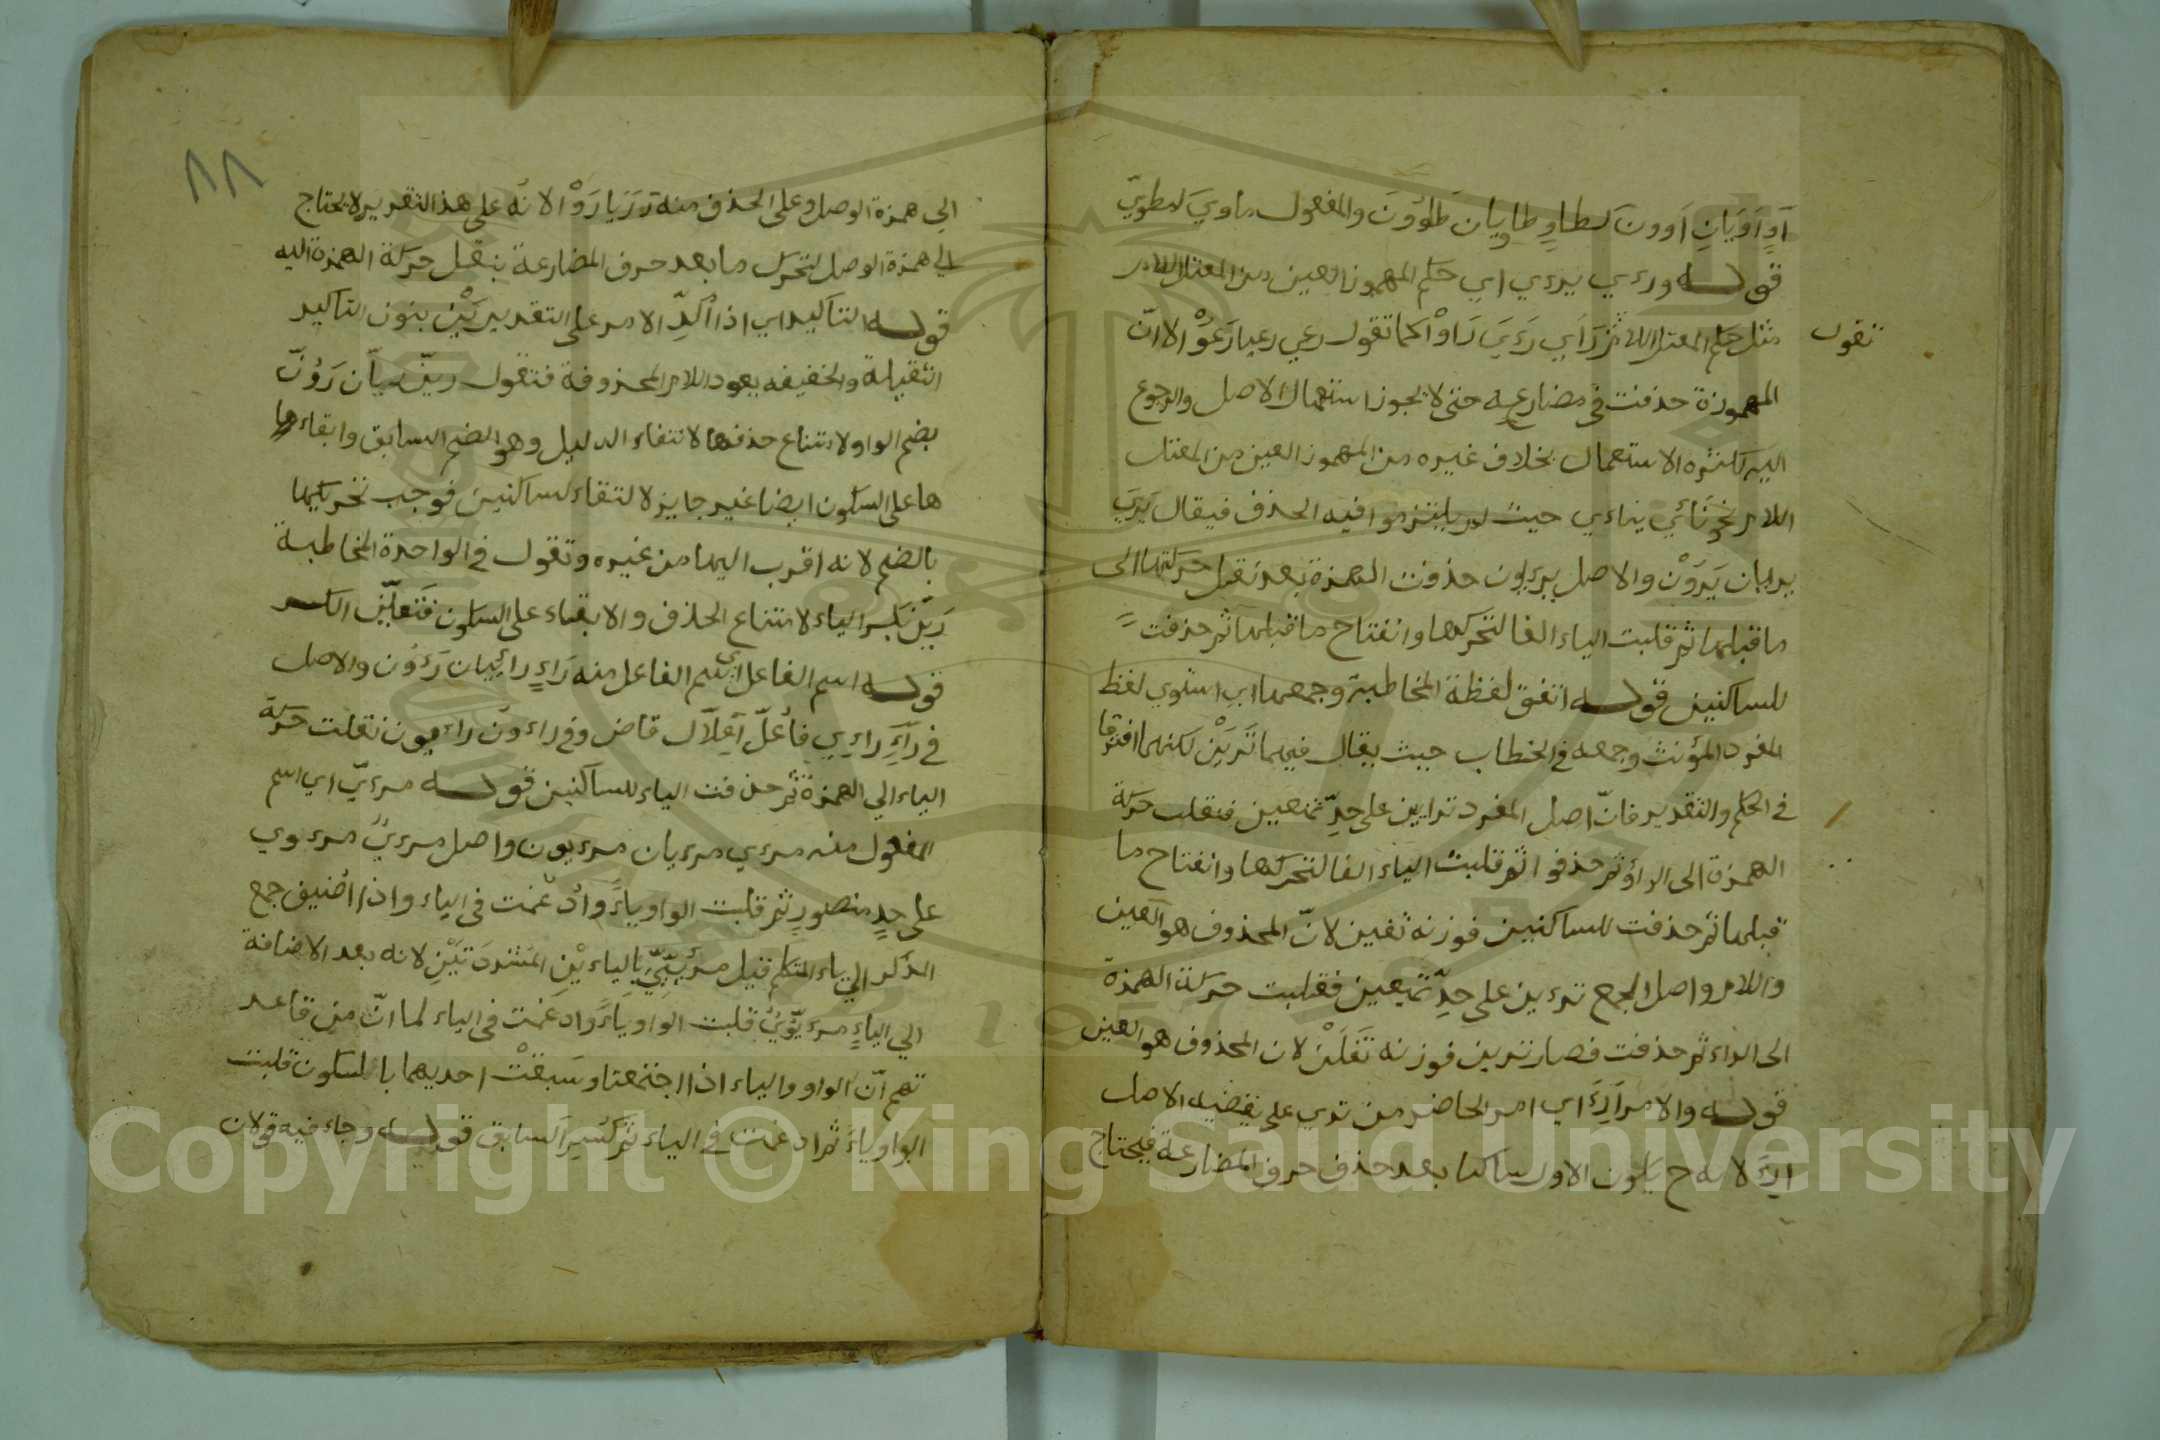 آوٍ آوَيَانِ آوون كطاوٍ طاويان طاوُونَ والمفعول ماوي كمطويّ
قوله ورءي يرءي اي حكم المهموز العين من المعتل اللام
مثل حكم المعتل اللام رَاَي رءَيَ رَاوْا كما تقول رعي رعيا رَعَوْا الا انّ
تقول
المهموزة حذفت في مضارعه حتى لا يجوز استعمال الاصل والرجوع
اليه لكثره الاستعمال بخلاف غيره من المهموز العين من المعتل
اللام نحو نَائي يناءي حيث لم يلتزموا فيه الحذف فيقال يَرَيَ
يريان يَرَوْن والاصل يرءيون حذفت الهمزة بعد نقل حركتها الى
ما قبلها ثم قلبت الياء الفا لتحركها وانفتاح ما قبلها ثم حذفت
للساكنين قوله اتفق لفظة المخاطبة وجمعها اي استوي لفظ
المفرد المؤنث وجمعه في الخطاب حيث يقال فيهما تَرَيْن لكنهما افترقا
في الحكم والتقدير فانّ اصل المفرد ترايين على حدِّ تمنعين فنقلت حركة
الهمزة الى الراء ثم حذفوا ثم قلبت الياء الفا لتحركها وانفتاح ما
قبلها ثم حذفت للساكنين فوزنه تفين لانّ المحذوف هو العين
واللام واصل الجمع ترءين على حدِّ تمنعين فنقلت حركة الهمزة
الى الراء ثم حذفت فصار ترين فوزنه تَفَلْنَ لان المحذوف هو العين
قوله والامر اَرِءَ اي امر الحاضر من تري على تقضيه الاصل
ارءَ لانه ح يكون الاول ساكنا بعد حذف حرف المضارعة فيحتاج
٨٨
الي همزة الوصل وعلى الحذف منه رَ رَيَا رَوْا لانّه على هذا التقرير لا يحتاج
الي همزة الوصل لتحرك ما بعد حرف المضارعة بنقل حركة الهمزة اليه
قوله التاكيد اي اذا اُكِدِّ الامر على التقدير يَيْن بنون التاكيد
الثقيلة والخفيفه يعود اللام المحذوفة فتقول ريَنّ ريانّ رَوُنّ
بضم الواو لامتناع حذفها لانتفاء الدليل وهو الضم السابق وابقاءها
ها على السكون ايضا غير جايز لالتقاء لساكنين فوجب تحريكها
بالضم لانه اقرب اليها من غيره وتقول في الواحدة المخاطبة
رَيِنّ بكسر الياء لامتناع الحذف والابقاء على السكون فتعيّن الكسر
قوله اسم الفاعل اي اسم الفاعل منه رَاءٍ رائيان رَءؤن والاصل
في رَآءٍ راءِي فاُعلّ اَعِلاّل قاض وفي راءون راءيون نقلت حركة
الياء الي الهمزة ثم حذفت الياء للساكنين قوله مرءيّ اي اسم
المفعول منه مرءي مرءيان مرءيون واصل مرءيٌ مرءوي
على حدِ منصورٍ ثم قلبت الواو ياءً واُدغمت في الياء واذا اُضيف جمع
الذكر الي ياء المتكلم قيل مرئِيِّيَّ بالياءيْنِ المشددَتَيْنِ لانه بعد الاضافة
الي الياءِ مرءيّوْيُ قلبت الواو ياءً وادغمت في الياء لما انّ من قاعد
تهم انّ الواو والياء اذا اجتمعتا وسَبقتْ احديهما بالسكون قلبت
الواو ياءً ثم ادغمت في الياء ثم كُسِرَ السابق قوله وجاء فيه قولان
Copyright © King Saud University
1957